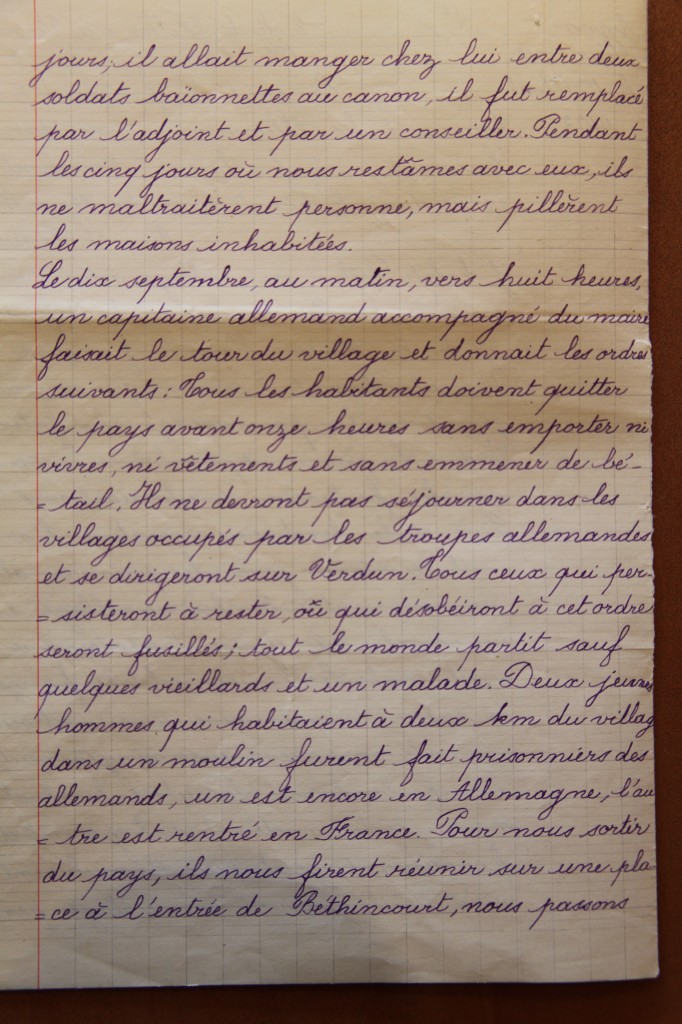 jours; il allait manger chez lui entre deux
soldats baïonnettes au canon, il fut remplacé
par l'adjoint et par un conseiller. Pendant
les cinq jours où nous restâmes avec eux, ils
ne maltraitèrent personne, mais pillèrent
les maisons inhabitées.
Le dix septembre, au matin, vers huit heures,
un capitaine allemand accompagné du maire
faisait le tour du village et donnait les ordres
suivants: Tous les habitants doivent quitter
le pays avant onze heures sans emporter ni
vivres, ni vêtements et sans emmener de bé-
=tail. Ils ne devront pas séjourner dans les
villages occupés par les troupes allemandes
et se dirigeront sur Verdun. Tous ceux qui per-
=sisteront à rester, où qui désobéiront à cet ordre
seront fusillés; tout le monde partit sauf
quelques vieillards et un malade. Deux jeunes
hommes, qui habitaient à deux km du villag
dans un moulin furent fait prisonniers des
allemands, un est encore en Allemagne, l'au
=tre est rentré en France. Pour nous sortir
du pays, ils nous firent réunir sur une pla
=ce à l'entrée de Béthincourt, nous passons